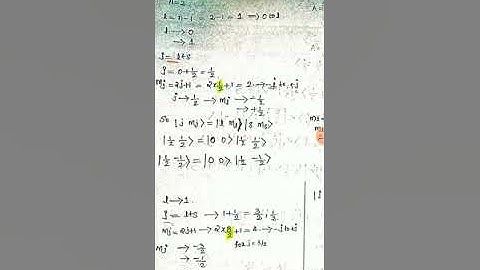 n=2
l = n-1 = 2-1 = 1 → 0 to 1
l → 0
→ 1
J = l+s
J = 0+1/2 = 1/2
mj = 2j+1 = 2×1/2+1 = 2 → -j to +j
j → 1/2 → mj → -1/2
→ +1/2
so |j mj> = |l ml>|s ms>
|1/2 1/2> = |0 0> |1/2 1/2>
|1/2 -1/2> = |0 0> |1/2 -1/2>
l → 1
J = l+s → 1+1/2 = 3/2, 1/2
mj = 2j+1 → 2×3/2+1 = 4 → -j to +j
for j = 3/2
mj → -3/2
→ -1/2